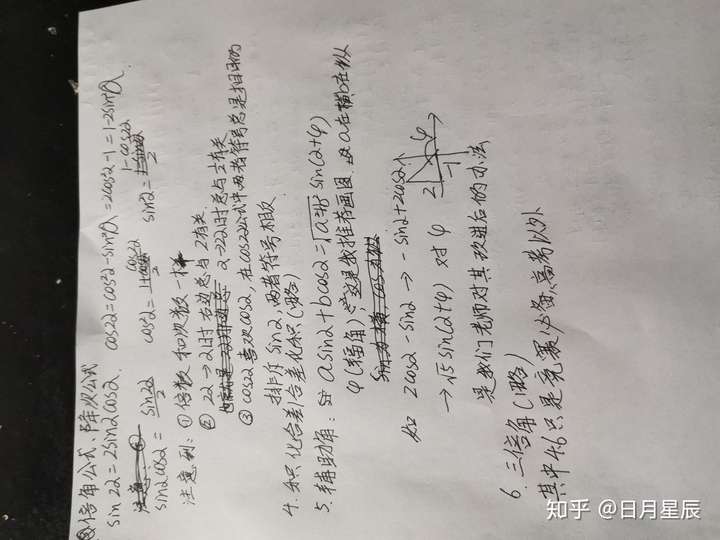 倍角公式、降次公式
sin2α=2sinαcosα. cos2α=cos²α-sin²α=2cos²α-1=1-2sin²α
sinαcosα=sin2α/2 cos²α=1+cos2α/2 sin²α=1-cos2α/2
注意到:①倍数和次数一样
②2α→α时右边总与2有关
α→2α时总与½有关
③cos2α喜欢cosα,在cos2α公式中两者符号总是相同的
排斥sinα,两者符号相反
4.积化合差/合差化积(略)
5.辅助角: asinα+bcosα=√a²+b² sin(α+φ)
φ(辅角),这是我推荐画图 a在横b在纵
如 2cosα-sinα→-sinα+2cosα
→√5sin(α+φ) 对φ
2
-1
φ
是我们老师对其改进后的办法
6.三倍角(略)
其中4.6只是竞赛必备,高考以外
知乎 @日月星辰